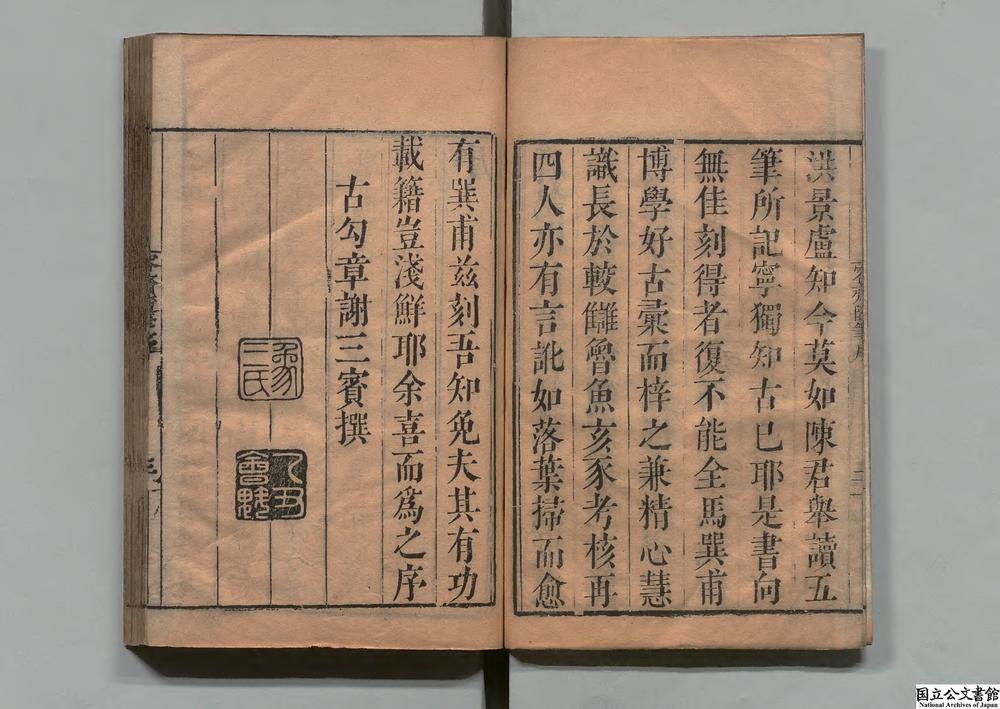 洪景盧知今莫如陳君舉讀五
筆所記寧獨知古已耶是書向
無佳刻得者復不能全馬巽甫
博學好古彙而梓之兼精心慧
識長於較讎魯魚亥豕考核再
四人亦有言訛如落葉掃而愈
有巽甫兹刻吾知免夫其有功
載籍豈淺鮮耶余喜而為之序
古勾章謝三賓撰
国立公文書館
National Archives of Japan